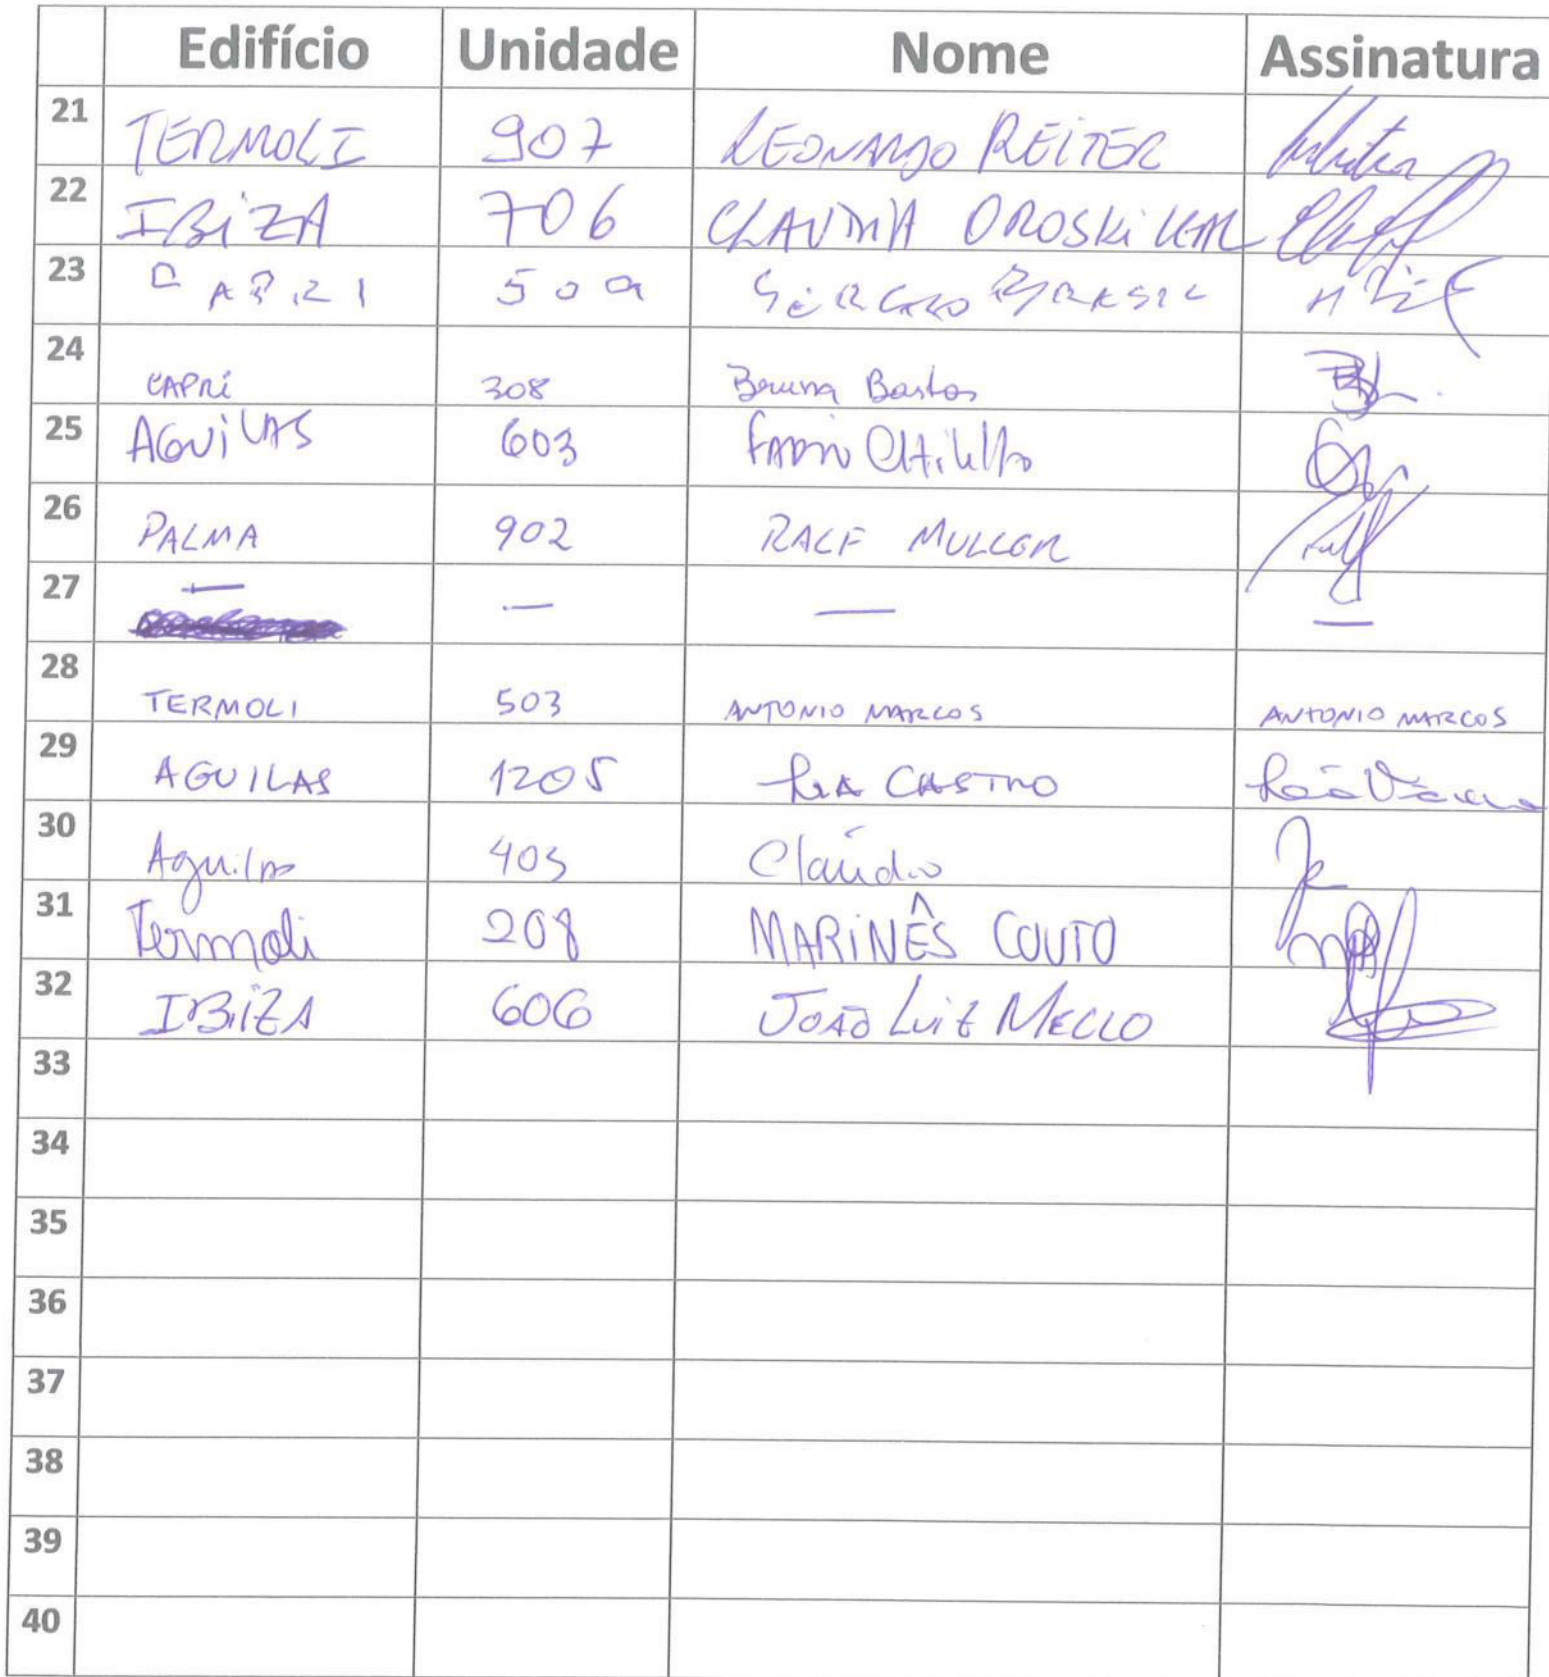 Edifício Unidade Nome Assinatura
21 TERMOLI 907 LEONARDO REITER
22 IBIZA 706 CLAUDIA OROSKI
23 CAPRI 509 SÉRGIO BRASIL
24 CAPRI 308 Bruna Bastos
25 AGUILAS 603 FABIO
26 PALMA 902 RALF MULLER
27 — — — —
28 TERMOLI 503 ANTONIO MARCOS ANTONIO MARCOS
29 AGUILAS 1205 CASTRO
30 Aguilas 405 Claúdio
31 Termoli 208 MARINÊS COUTO
32 IBIZA 606 JOÃO LUIZ MELLO
33
34
35
36
37
38
39
40